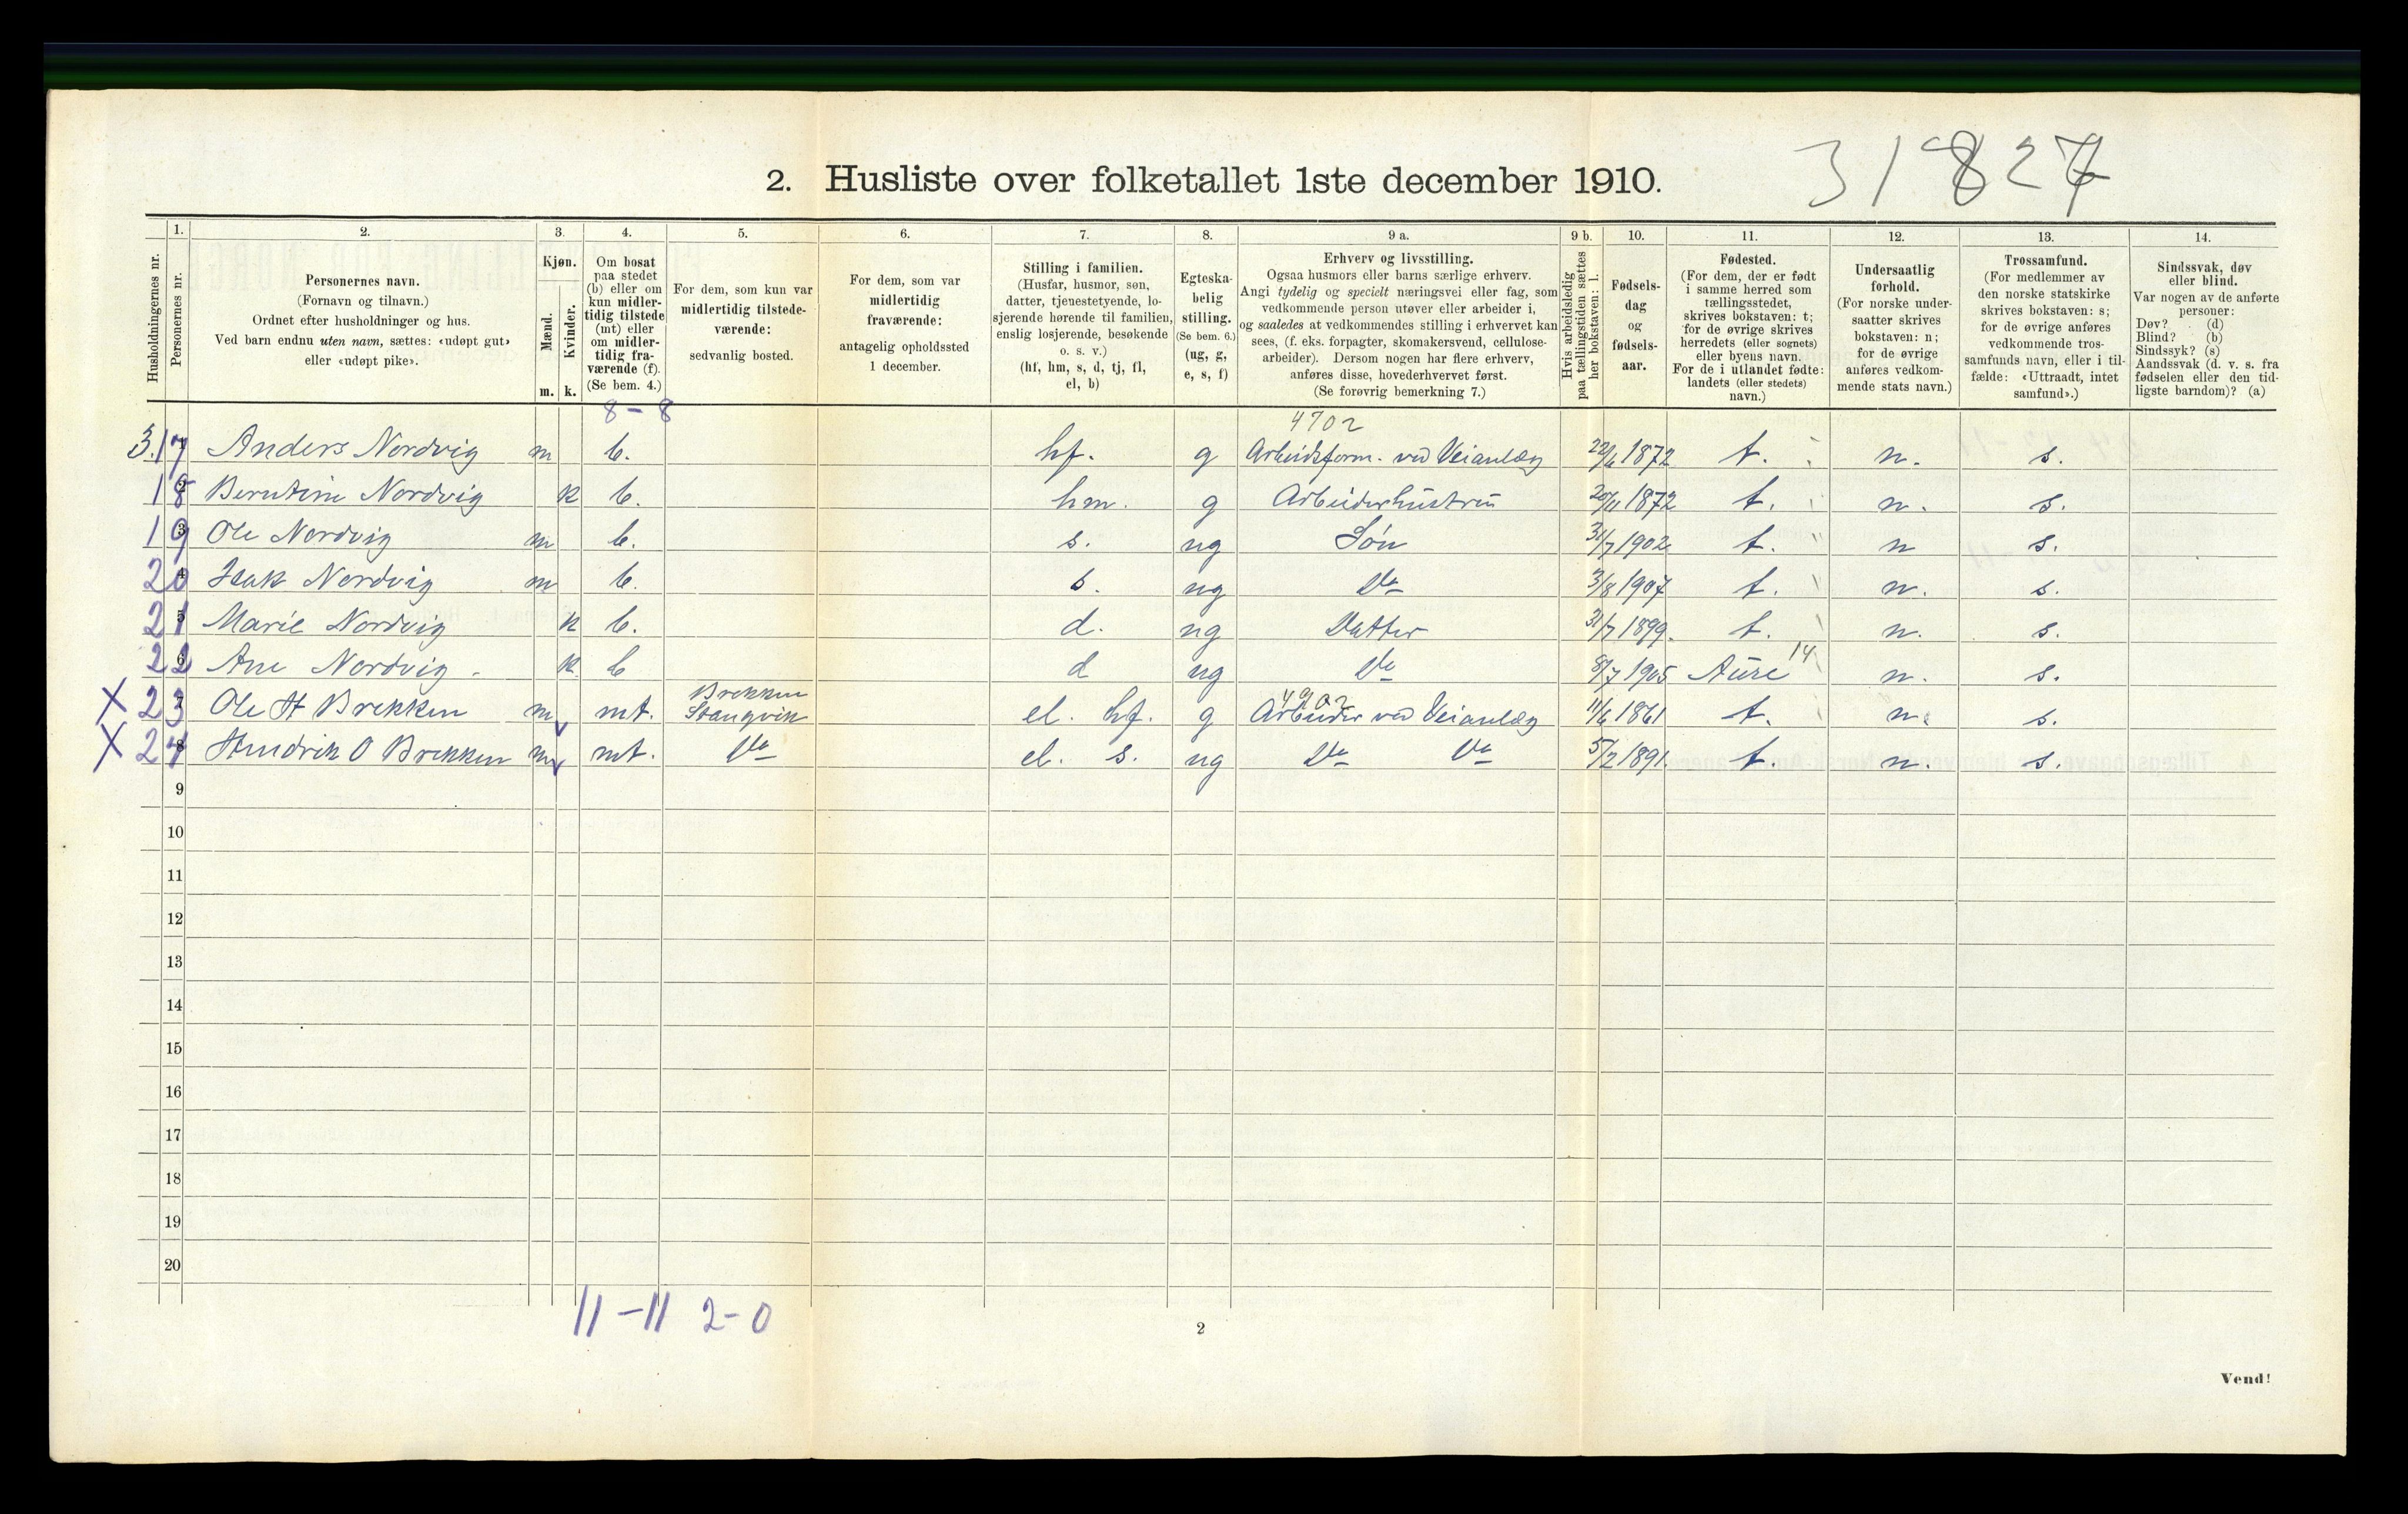 31827
2. Husliste over folketallet 1ste december 1910.
Husholdningernes nr.
1.
Personernes nr.
2.
Personernes navn.
(Fornavn og tilnavn.)
Ordnet efter husholdninger og hus.
Ved barn endnu uten navn, sættes: «udøpt gut»
eller «udøpt pike».
3.
Kjøn.
Mænd.
Kvinder.
m. k.
4.
Om bosat
paa stedet
(b) eller om
kun midler-
tidig tilstede
(mt) eller
om midler-
tidig fra-
værende (f).
(Se bem. 4.)
5.
For dem, som kun var
midlertidig tilstede-
værende:
sedvanlig bosted.
6.
For dem, som var
midlertidig
fraværende:
antagelig opholdssted
1 december.
7.
Stilling i familien.
(Husfar, husmor, søn,
datter, tjenestetyende, lo-
sjerende hørende til familien,
enslig losjerende, besøkende
o. s. v.)
(hf, hm, s, d, tj, fl,
el, b)
8.
Egteska-
belig
stilling.
(Se bem. 6.)
(ug, g,
e, s, f)
9 a.
Erhverv og livsstilling.
Ogsaa husmors eller barns særlige erhverv.
Angi tydelig og specielt næringsvei eller fag, som
vedkommende person utøver eller arbeider i,
og saaledes at vedkommendes stilling i erhvervet kan
sees, (f. eks. forpagter, skomakersvend, cellulose-
arbeider). Dersom nogen har flere erhverv,
anføres disse, hovederhvervet først.
(Se forøvrig bemerkning 7.)
9 b.
Hvis arbeidsledig
paa tællingstiden sættes
her bokstaven: l.
10.
Fødsels-
dag
og
fødsels-
aar.
11.
Fødested.
(For dem, der er født
i samme herred som
tællingsstedet,
skrives bokstaven: t;
for de øvrige skrives
herredets (eller sognets)
eller byens navn.
For de i utlandet fødte:
landets (eller stedets)
navn.)
12.
Undersaatlig
forhold.
(For norske under-
saatter skrives
bokstaven: n;
for de øvrige
anføres vedkom-
mende stats navn.)
13.
Trossamfund.
(For medlemmer av
den norske statskirke
skrives bokstaven: s;
for de øvrige anføres
vedkommende tros-
samfunds navn, eller i til-
fælde: «Uttraadt, intet
samfund».)
14.
Sindssvak, døv
eller blind.
Var nogen av de anførte
personer:
Døv? (d)
Blind? (b)
Sindssyk? (s)
Aandssvak (d. v. s. fra
fødselen eller den tid-
ligste barndom)? (a)
8-8
4702
3. 17 Anders Nordvig m b. hf. g Arbeidsform. ved Veianlæg 22/6 1872 t. n. s.
18 Berntine Nordvig k b. hm. g Arbeiderhustru 20/11 1872 t. n. s.
19 Ole Nordvig m b. s. ug Søn 31/7 1902 t. n s.
20 Isak Nordvig m b. s. ug Do 3/8 1907 t. n. s.
21 Marie Nordvig k b. d. ug Datter 31/7 1899. t. n. s.
22 Ane Nordvig k b d ug Do 8/7 1905 Aure 14 n. s.
Brekken
X 23 Ole H Brekken m mt. Stangvik el. hf. g Arbeider ved Veianlæg 11/6 1861 t. n. s.
X 24 Hendrik O Brekken m mt. Do el. s. ug Do Do 5/2 1891. t. n. s.
9
10
11
12
13
14
15
16
17
18
19
20
11-11 2-0
2
Vend!